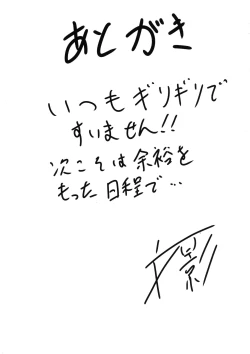 あとがき
いつもギリギリで
すいません!!
次こそは余裕を
もった日程で…